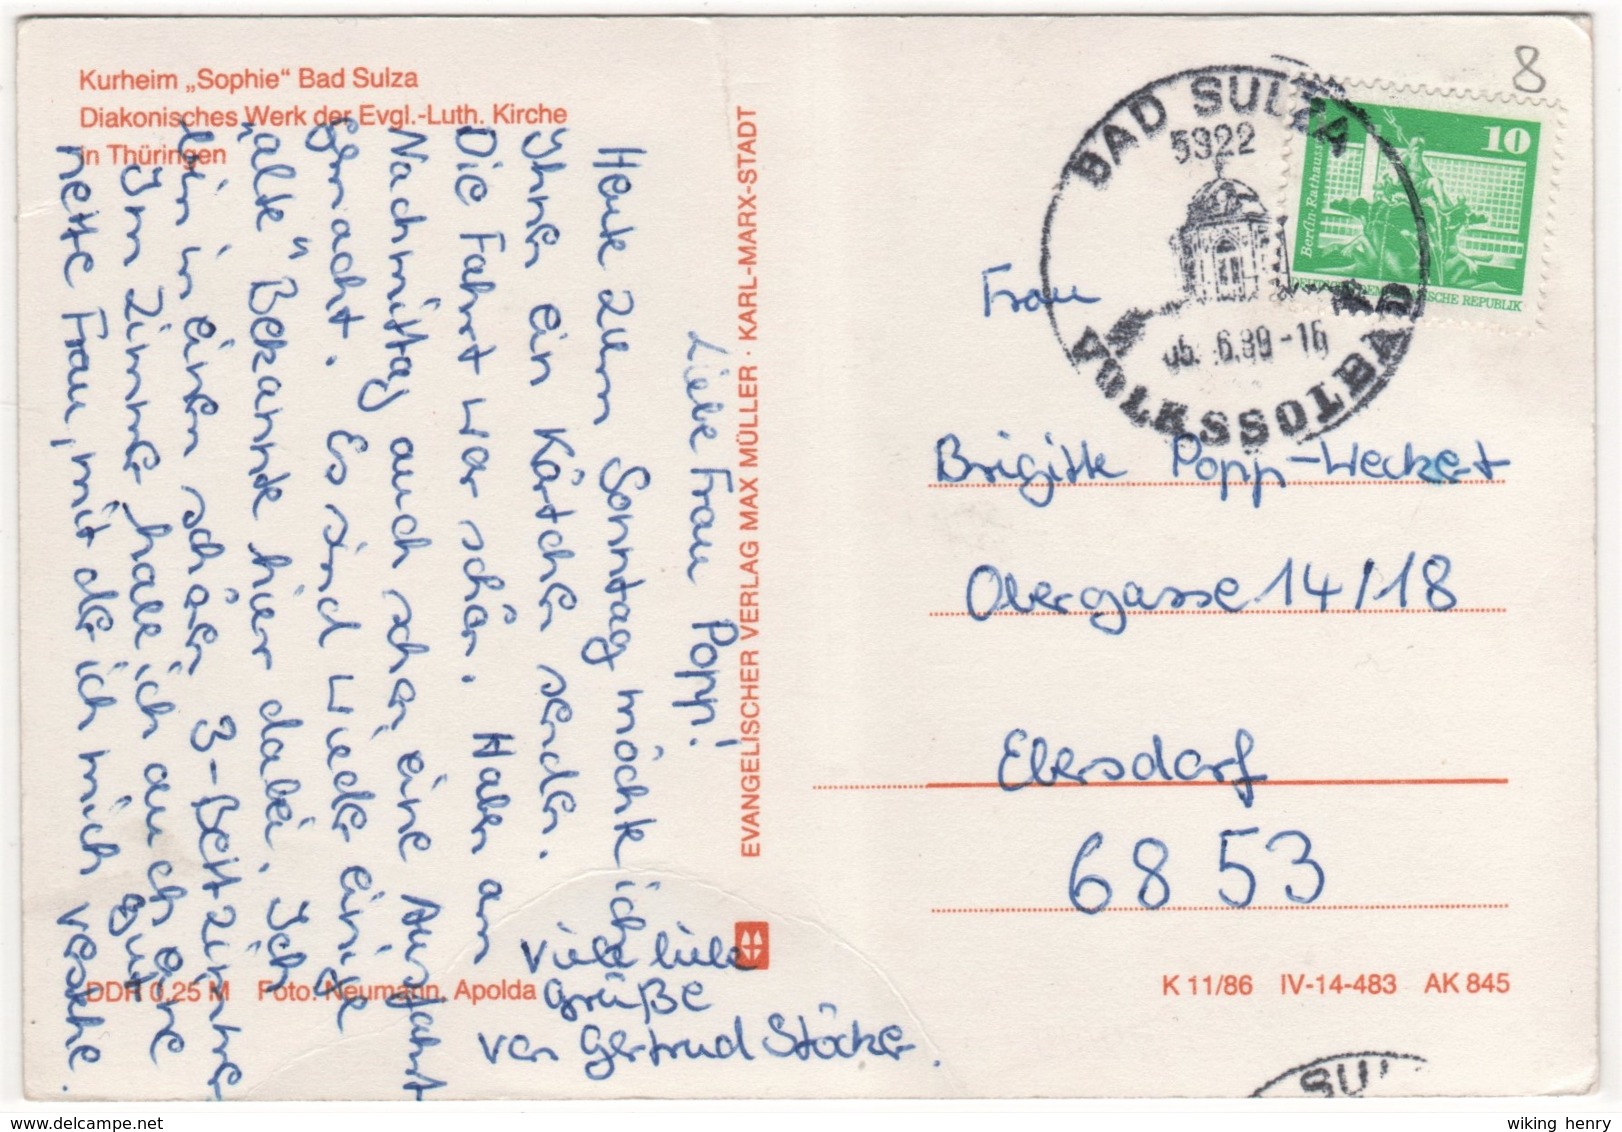 Kurheim „Sophie“ Bad Sulza
Diakonisches Werk der Evgl.-Luth. Kirche
in Thüringen
Liebe Frau Popp!
Heute zum Sonntag möchte ich
Ihnen ein Kärtchen senden.
Die Fahrt war schön. Haben am
Nachmittag auch schon eine Ausfahrt
gemacht. Es sind wieder einige
"alte" Bekannte hier dabei. Ich
bin in einem schönen 3-Bettzimmer
Im Zimmer habe ich auch eine
nette Frau, mit der ich mich gut verstehe.
Viele liebe
Grüße
von Gertrud Stöcker.
EVANGELISCHER VERLAG MAX MÜLLER · KARL-MARX-STADT
DDR 0,25 M Foto: Neumann, Apolda
8
BAD SULZA
5322
05. 6.89-16
VOLKSSOLBAD
10
Berlin-Rathausstr
DEUTSCHE DEMOKRATISCHE REPUBLIK
Frau
Brigitte Popp-Weckert
Obergasse 14/18
Ebersdorf
6853
K 11/86 IV-14-483 AK 845
SUL
wiking henry